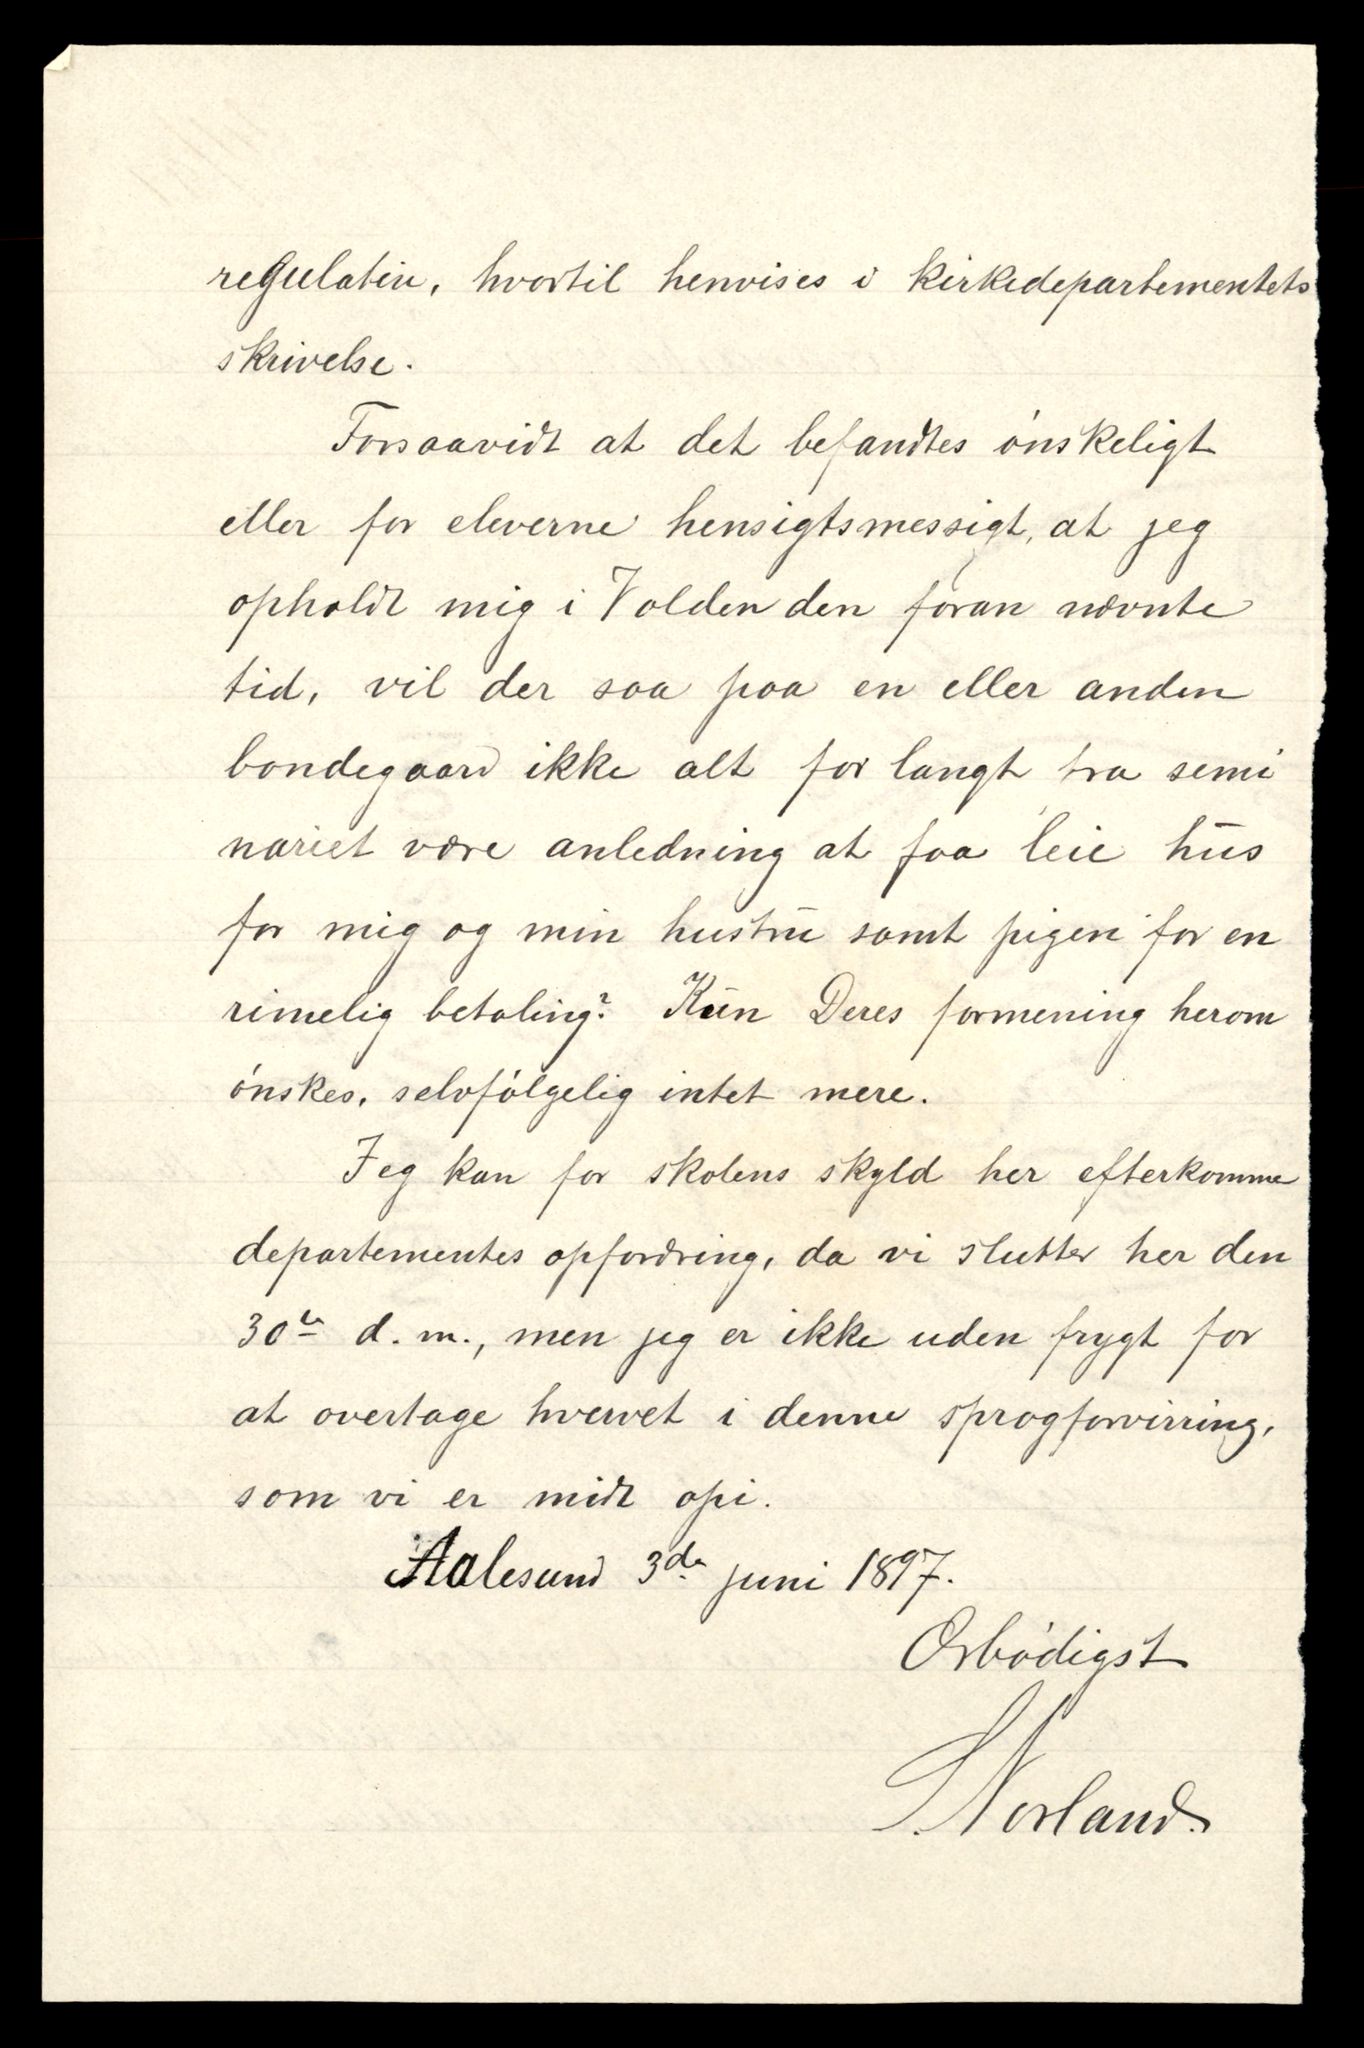 regulativ, hvortil henvises i kirkedepartementets
skrivelse.
Forsaavidt at det befandtes ønskeligt
eller for eleverne hensigtsmessigt, at jeg
opholdt mig i Volden den foran nævnte
tid, vil der saa paa en eller anden
bondegaard ikke alt for langt fra semi
nariet være anledning at faa leie hus
for mig og min hustru samt pigen for en
rimelig betaling? Kun Deres formening herom
ønskes, selvfølgelig intet mere.
Jeg kan for skolens skyld her efterkomme
departementes opfordring, da vi slutter her den
30te d. m., men jeg er ikke uden frygt for
at overtage hvervet i denne sprogforvirring,
som vi er midt opi.
Aalesund 3de juni 1897.
Ærbødigst
Norland